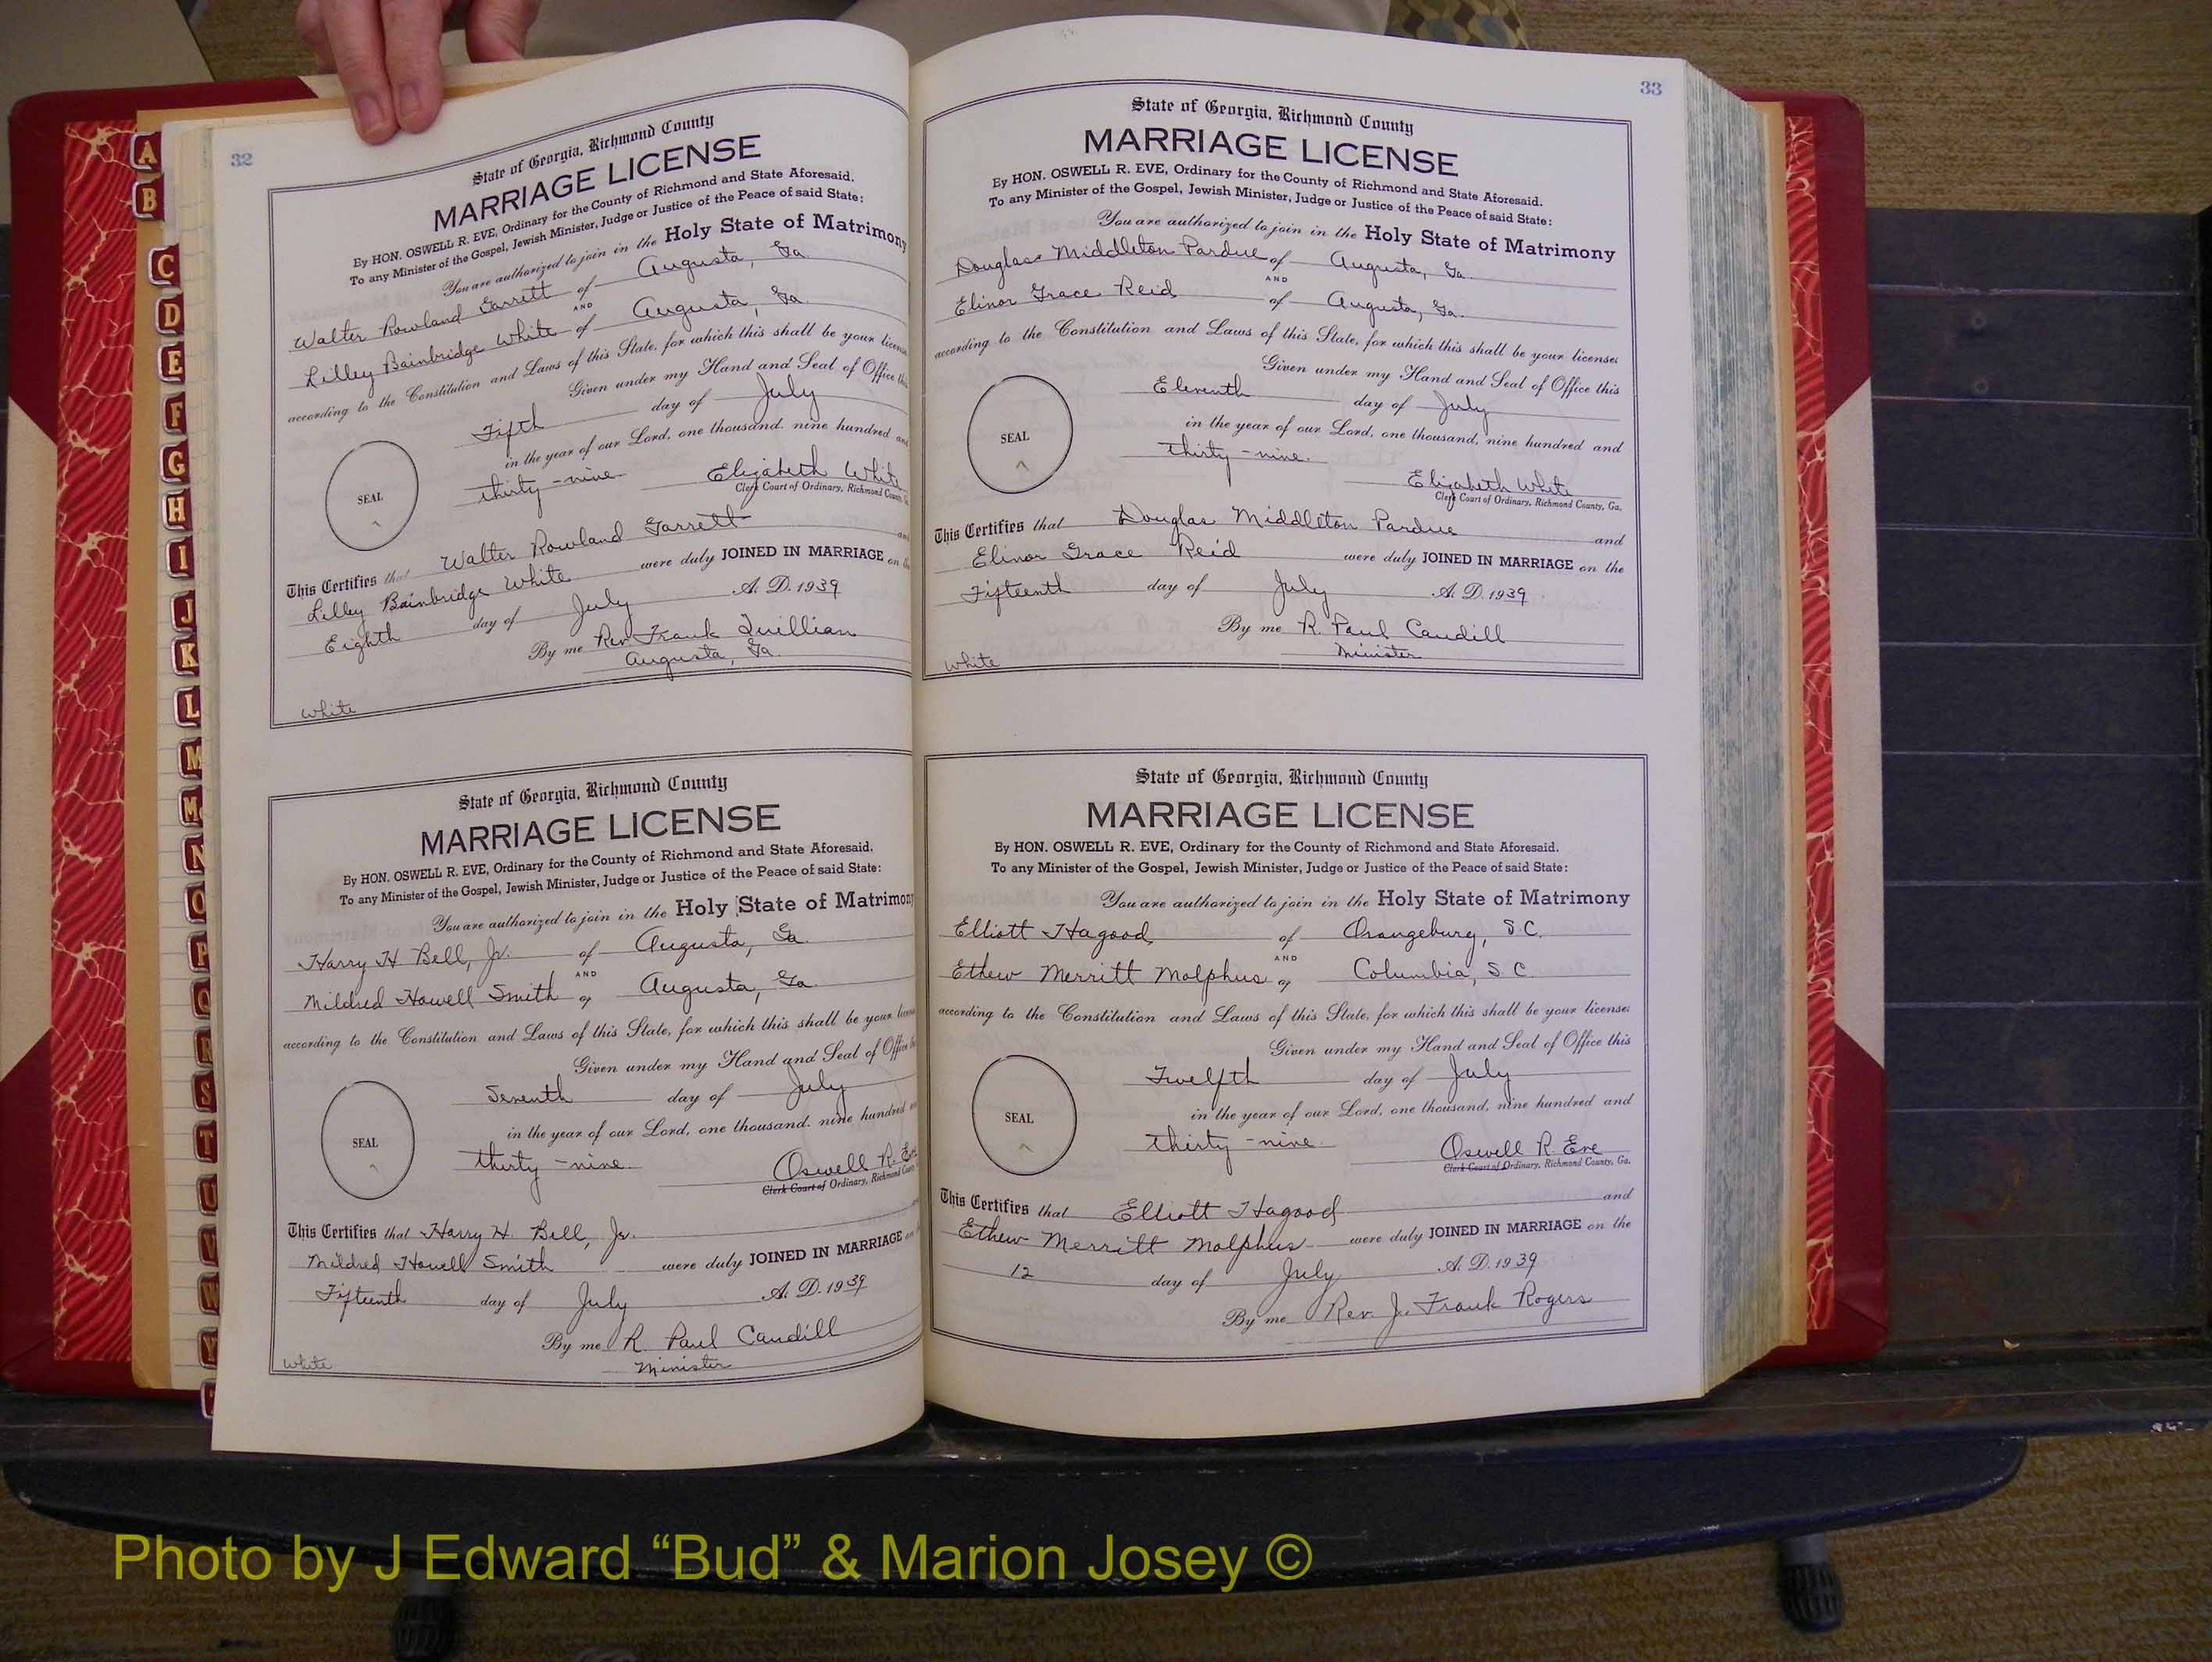 A
B
C
D
E
F
G
H
I
J
K
L
M
Mc
N
O
P
Q
R
S
T
U
V
W
Y
32
State of Georgia, Richmond County
MARRIAGE LICENSE
By HON. OSWELL R. EVE, Ordinary for the County of Richmond and State Aforesaid.
To any Minister of the Gospel, Jewish Minister, Judge or Justice of the Peace of said State:
You are authorized to join in the Holy State of Matrimony
Walter Rowland Garrett of Augusta, Ga.
AND
Lilley Bainbridge White of Augusta, Ga.
according to the Constitution and Laws of this State, for which this shall be your license
Given under my Hand and Seal of Office this
Fifth day of July
in the year of our Lord, one thousand, nine hundred and
SEAL
thirty-nine Elizabeth White
Clerk Court of Ordinary, Richmond County, Ga.
This Certifies that Walter Rowland Garrett and
Lilley Bainbridge White were duly JOINED IN MARRIAGE on the
Eighth day of July A. D. 1939
By me Rev Frank Quillian
Augusta, Ga.
White
State of Georgia, Richmond County
MARRIAGE LICENSE
By HON. OSWELL R. EVE, Ordinary for the County of Richmond and State Aforesaid.
To any Minister of the Gospel, Jewish Minister, Judge or Justice of the Peace of said State:
You are authorized to join in the Holy State of Matrimony
Harry H Bell, Jr. of Augusta, Ga.
AND
Mildred Howell Smith of Augusta, Ga.
according to the Constitution and Laws of this State, for which this shall be your license
Given under my Hand and Seal of Office
Seventh day of July
in the year of our Lord, one thousand, nine hundred
SEAL
thirty-nine Oswell R. Eve
Clerk Court of Ordinary, Richmond County
This Certifies that Harry H. Bell, Jr. and
Mildred Howell Smith were duly JOINED IN MARRIAGE on
Fifteenth day of July A. D. 1939
By me R. Paul Caudill
Minister
White
33
State of Georgia, Richmond County
MARRIAGE LICENSE
By HON. OSWELL R. EVE, Ordinary for the County of Richmond and State Aforesaid.
To any Minister of the Gospel, Jewish Minister, Judge or Justice of the Peace of said State:
You are authorized to join in the Holy State of Matrimony
Douglass Middleton Pardue of Augusta, Ga.
AND
Elinor Grace Reid of Augusta, Ga.
according to the Constitution and Laws of this State, for which this shall be your license:
Given under my Hand and Seal of Office this
Eleventh day of July
in the year of our Lord, one thousand, nine hundred and
SEAL
thirty-nine.
Elizabeth White
Clerk Court of Ordinary, Richmond County, Ga.
This Certifies that Douglas Middleton Pardue and
Elinor Grace Reid were duly JOINED IN MARRIAGE on the
Fifteenth day of July A. D. 1939
By me R. Paul Caudill
Minister
White
State of Georgia, Richmond County
MARRIAGE LICENSE
By HON. OSWELL R. EVE, Ordinary for the County of Richmond and State Aforesaid.
To any Minister of the Gospel, Jewish Minister, Judge or Justice of the Peace of said State:
You are authorized to join in the Holy State of Matrimony
Elliott Hagood of Orangeburg, S.C.
AND
Ethew Merritt Molphus of Columbia, S C
according to the Constitution and Laws of this State, for which this shall be your license:
Given under my Hand and Seal of Office this
Twelfth day of July
in the year of our Lord, one thousand, nine hundred and
SEAL
thirty-nine Oswell R. Eve
Clerk Court of Ordinary, Richmond County, Ga.
This Certifies that Elliott Hagood and
Ethew Merritt Molphus were duly JOINED IN MARRIAGE on the
12 day of July A. D. 1939
By me Rev. J. Frank Rogers
Photo by J Edward “Bud” & Marion Josey ©